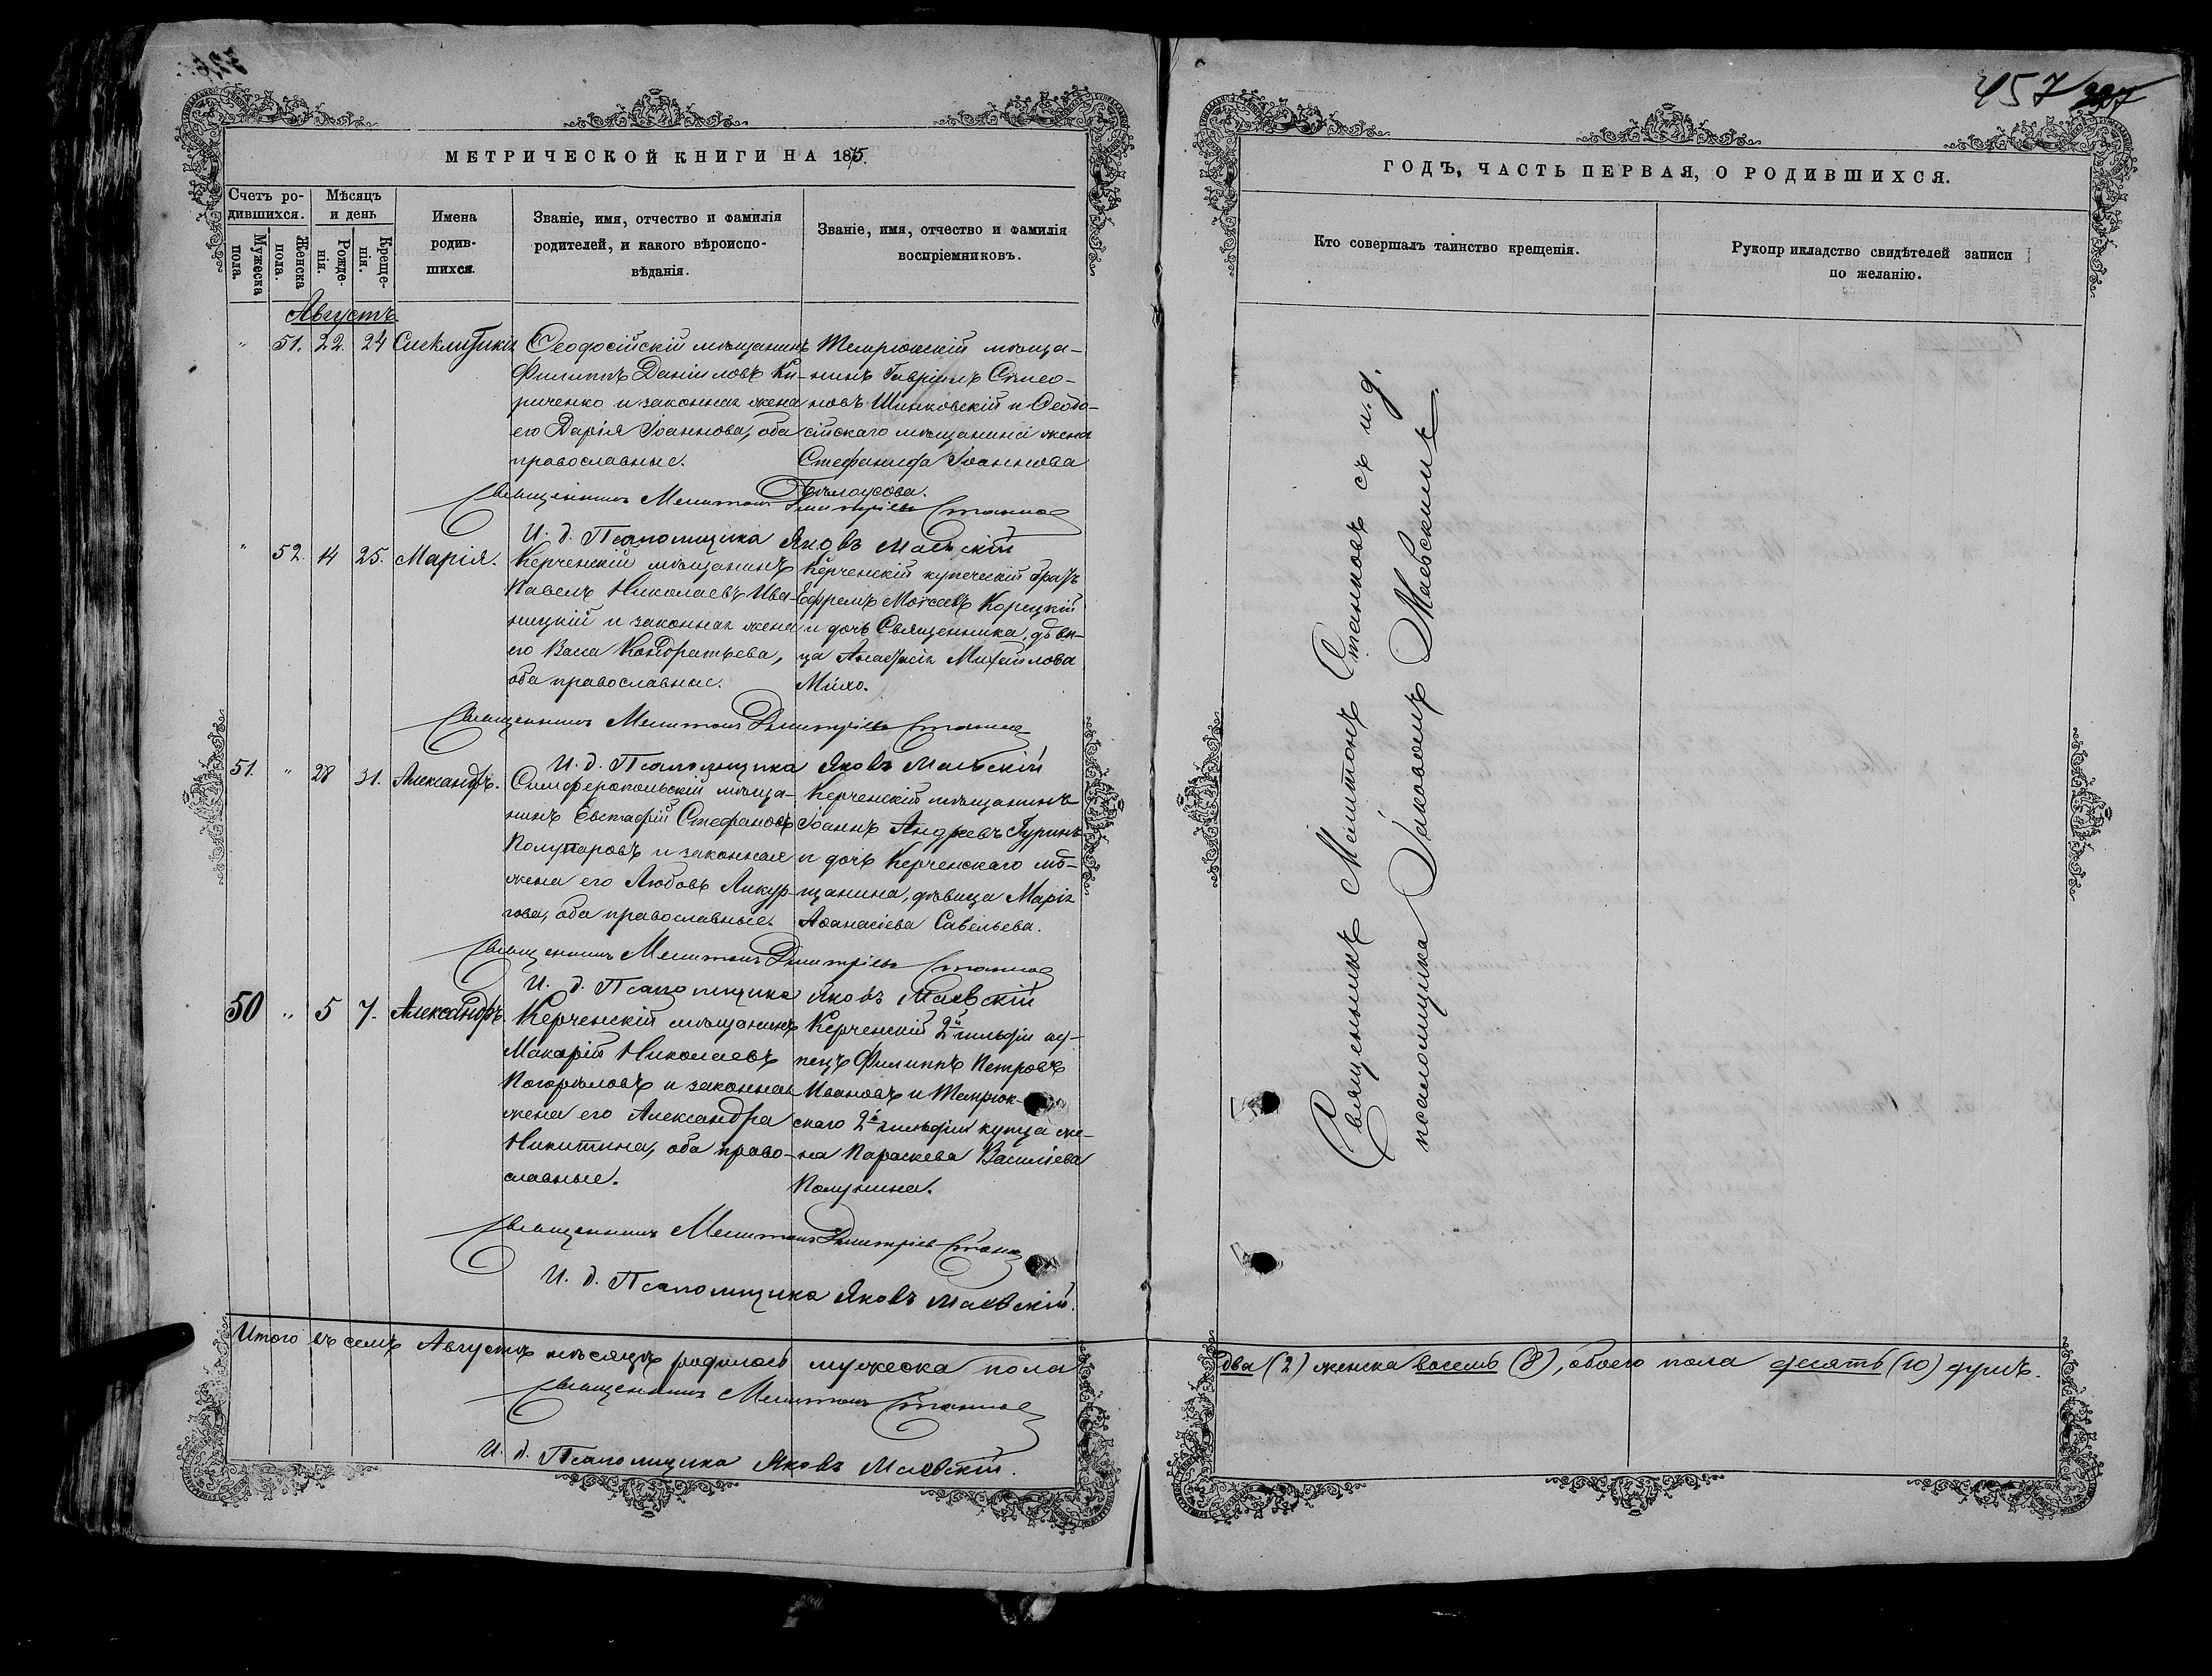 МЕТРИЧЕСКОЙ КНИГИ НА 1875.
Счетъ ро-
дившихся.
Мѣсяцъ
и день
Мужеска
пола.
Женска
пола.
Рожде-
нія.
Креще-
нія.
Имена
родив-
шихся.
Званіе, имя, отчество и фамилія
родителей, и какого вѣроиспо-
вѣданія.
Званіе, имя, отчество и фамилія
воспріемниковъ.
Августъ.
" 51. 22. 24 Синклитикія
Ѳеодосійскій мѣщанинъ
Филиппъ Даніиловъ Ки-
риченко и законная жена
его Дарія Іоаннова, оба
православные.
Темрюкскій мѣща-
нинъ Гавріилъ Симео-
новъ Шинковскій и Ѳеодо-
сійскаго мѣщанина жена
Стефанида Іоаннова
Бѣлоусова.
Священникъ Мелитонъ Димитріевъ Станковъ
И. д. Псаломщика Яковъ Маевскій
" 52. 14 25. Марія.
Керченскій мѣщанинъ
Павелъ Николаевъ Ива-
ницкій и законная жена
его Васса Кондратьева,
оба православные.
Керченскій купеческій братъ
Ефремъ Моѵсеевъ Корецкій
и дочь Священника, дѣви-
ца Анастасія Михайлова
Михо.
Священникъ Мелитонъ Димитріевъ Станковъ
И. д. Псаломщика Яковъ Маевскій
51. " 28 31. Александръ.
Симферопольскій мѣща-
нинъ Евстафій Стефановъ
Полупаровъ и законная
жена его Любовь Ликур-
гова, оба православные.
Керченскій мѣщанинъ
Іоаннъ Андреевъ Гуринъ
и дочь Керченскаго мѣ-
щанина, дѣвица Марія
Аѳанасіева Савельева.
Священникъ Мелитонъ Димитріевъ Станковъ
И. д. Псаломщика Яковъ Маевскій
50 " 5 7. Александръ.
Керченскій мѣщанинъ
Макарій Николаевъ
Погорѣловъ и законная
жена его Александра
Никитина, оба право-
славные.
Керченскій 2й гильдіи ку-
пецъ Филиппъ Петровъ
Ивановъ и Темрюк-
скаго 2й гильдіи купца же-
на Параскева Василіева
Полунина.
Священникъ Мелитонъ Димитріевъ Станковъ
И. д. Псаломщика Яковъ Маевскій.
Итого въ семъ Августѣ мѣсяцѣ родилось мужеска пола
Священникъ Мелитонъ Станковъ
И. д. Псаломщика Яковъ Маевскій.
457
ГОДЪ, ЧАСТЬ ПЕРВАЯ, О РОДИВШИХСЯ.
Кто совершалъ таинство крещенія.
Рукопр икладство свидѣтелей записи
по желанію.
Священникъ Мелитонъ Станковъ съ и. д.
псаломщика Іаковомъ Маевскимъ.
два (2) женска восемь (8), обоего пола десять (10) душъ.